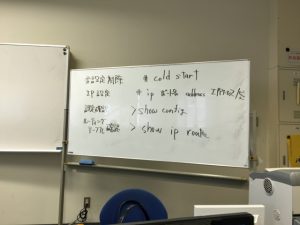 全設定削除 # cold start
IP設定 # ip ポート名 address IPアドレス/
設定確認 > show config
ルーティング
テーブル確認 > show ip route